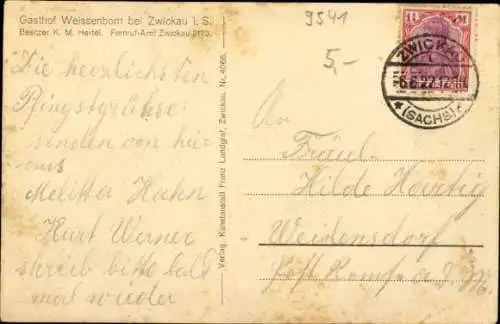 Gasthof Weissenborn bei Zwickau i. S.
Besitzer K. M. Hertel. Fernruf-Amt Zwickau 2170.
9541
5,-
1¼ M
ZWICKAU
6.6.22.12
* (SACHS) *
Die herzlichsten
Pfingstgrüße
senden von hier
aus
Melitta Hahn
Kurt Werner
schreib bitte bald
mal wieder
Verlag: Kunstanstalt Franz Landgraf, Zwickau. Nr. 4066.
An
Fräul.
Hilde Hartig
Weidensdorf
Post Remse a. d. M.